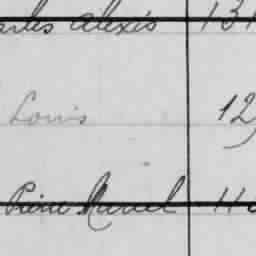 arles Alexis 131
Louis 12
Pierre Marcel 11